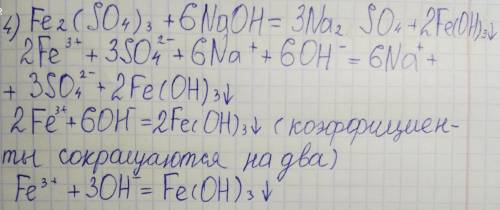 4) Fe₂(SO₄)₃ + 6NaOH = 3Na₂ SO₄ + 2Fe(OH)₃↓
2Fe³⁺ + 3SO₄²⁻ + 6Na⁺ + 6OH⁻ = 6Na⁺ +
+ 3SO₄²⁻ + 2Fe(OH)₃↓
2Fe³⁺ + 6OH⁻ = 2Fe(OH)₃↓ (коэффициен-
ты сокращаются на два)
Fe³⁺ + 3OH⁻ = Fe(OH)₃↓